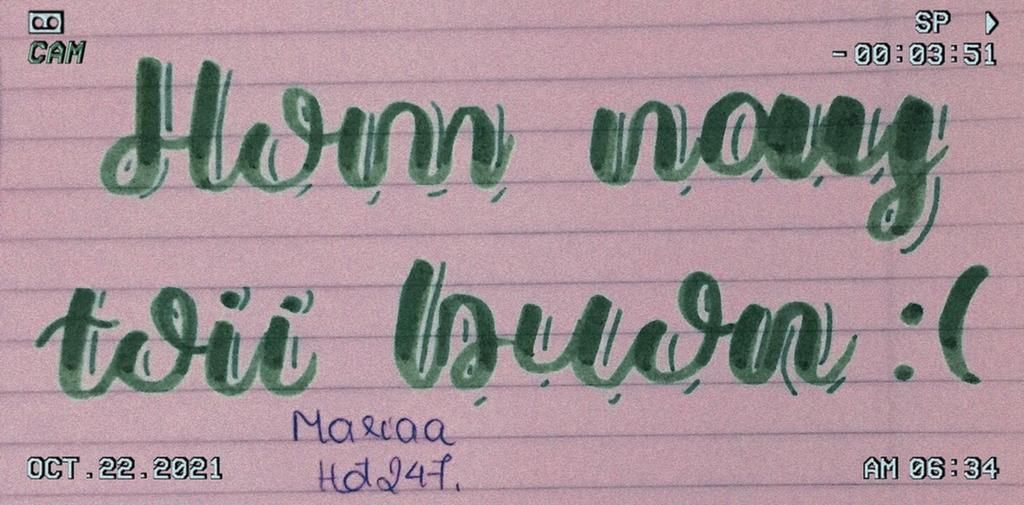 CAM
SP
-00:03:51
Hơm nayy
tơii buơn :(
Marcaa
Hd247.
OCT.22.2021
AM 06:34